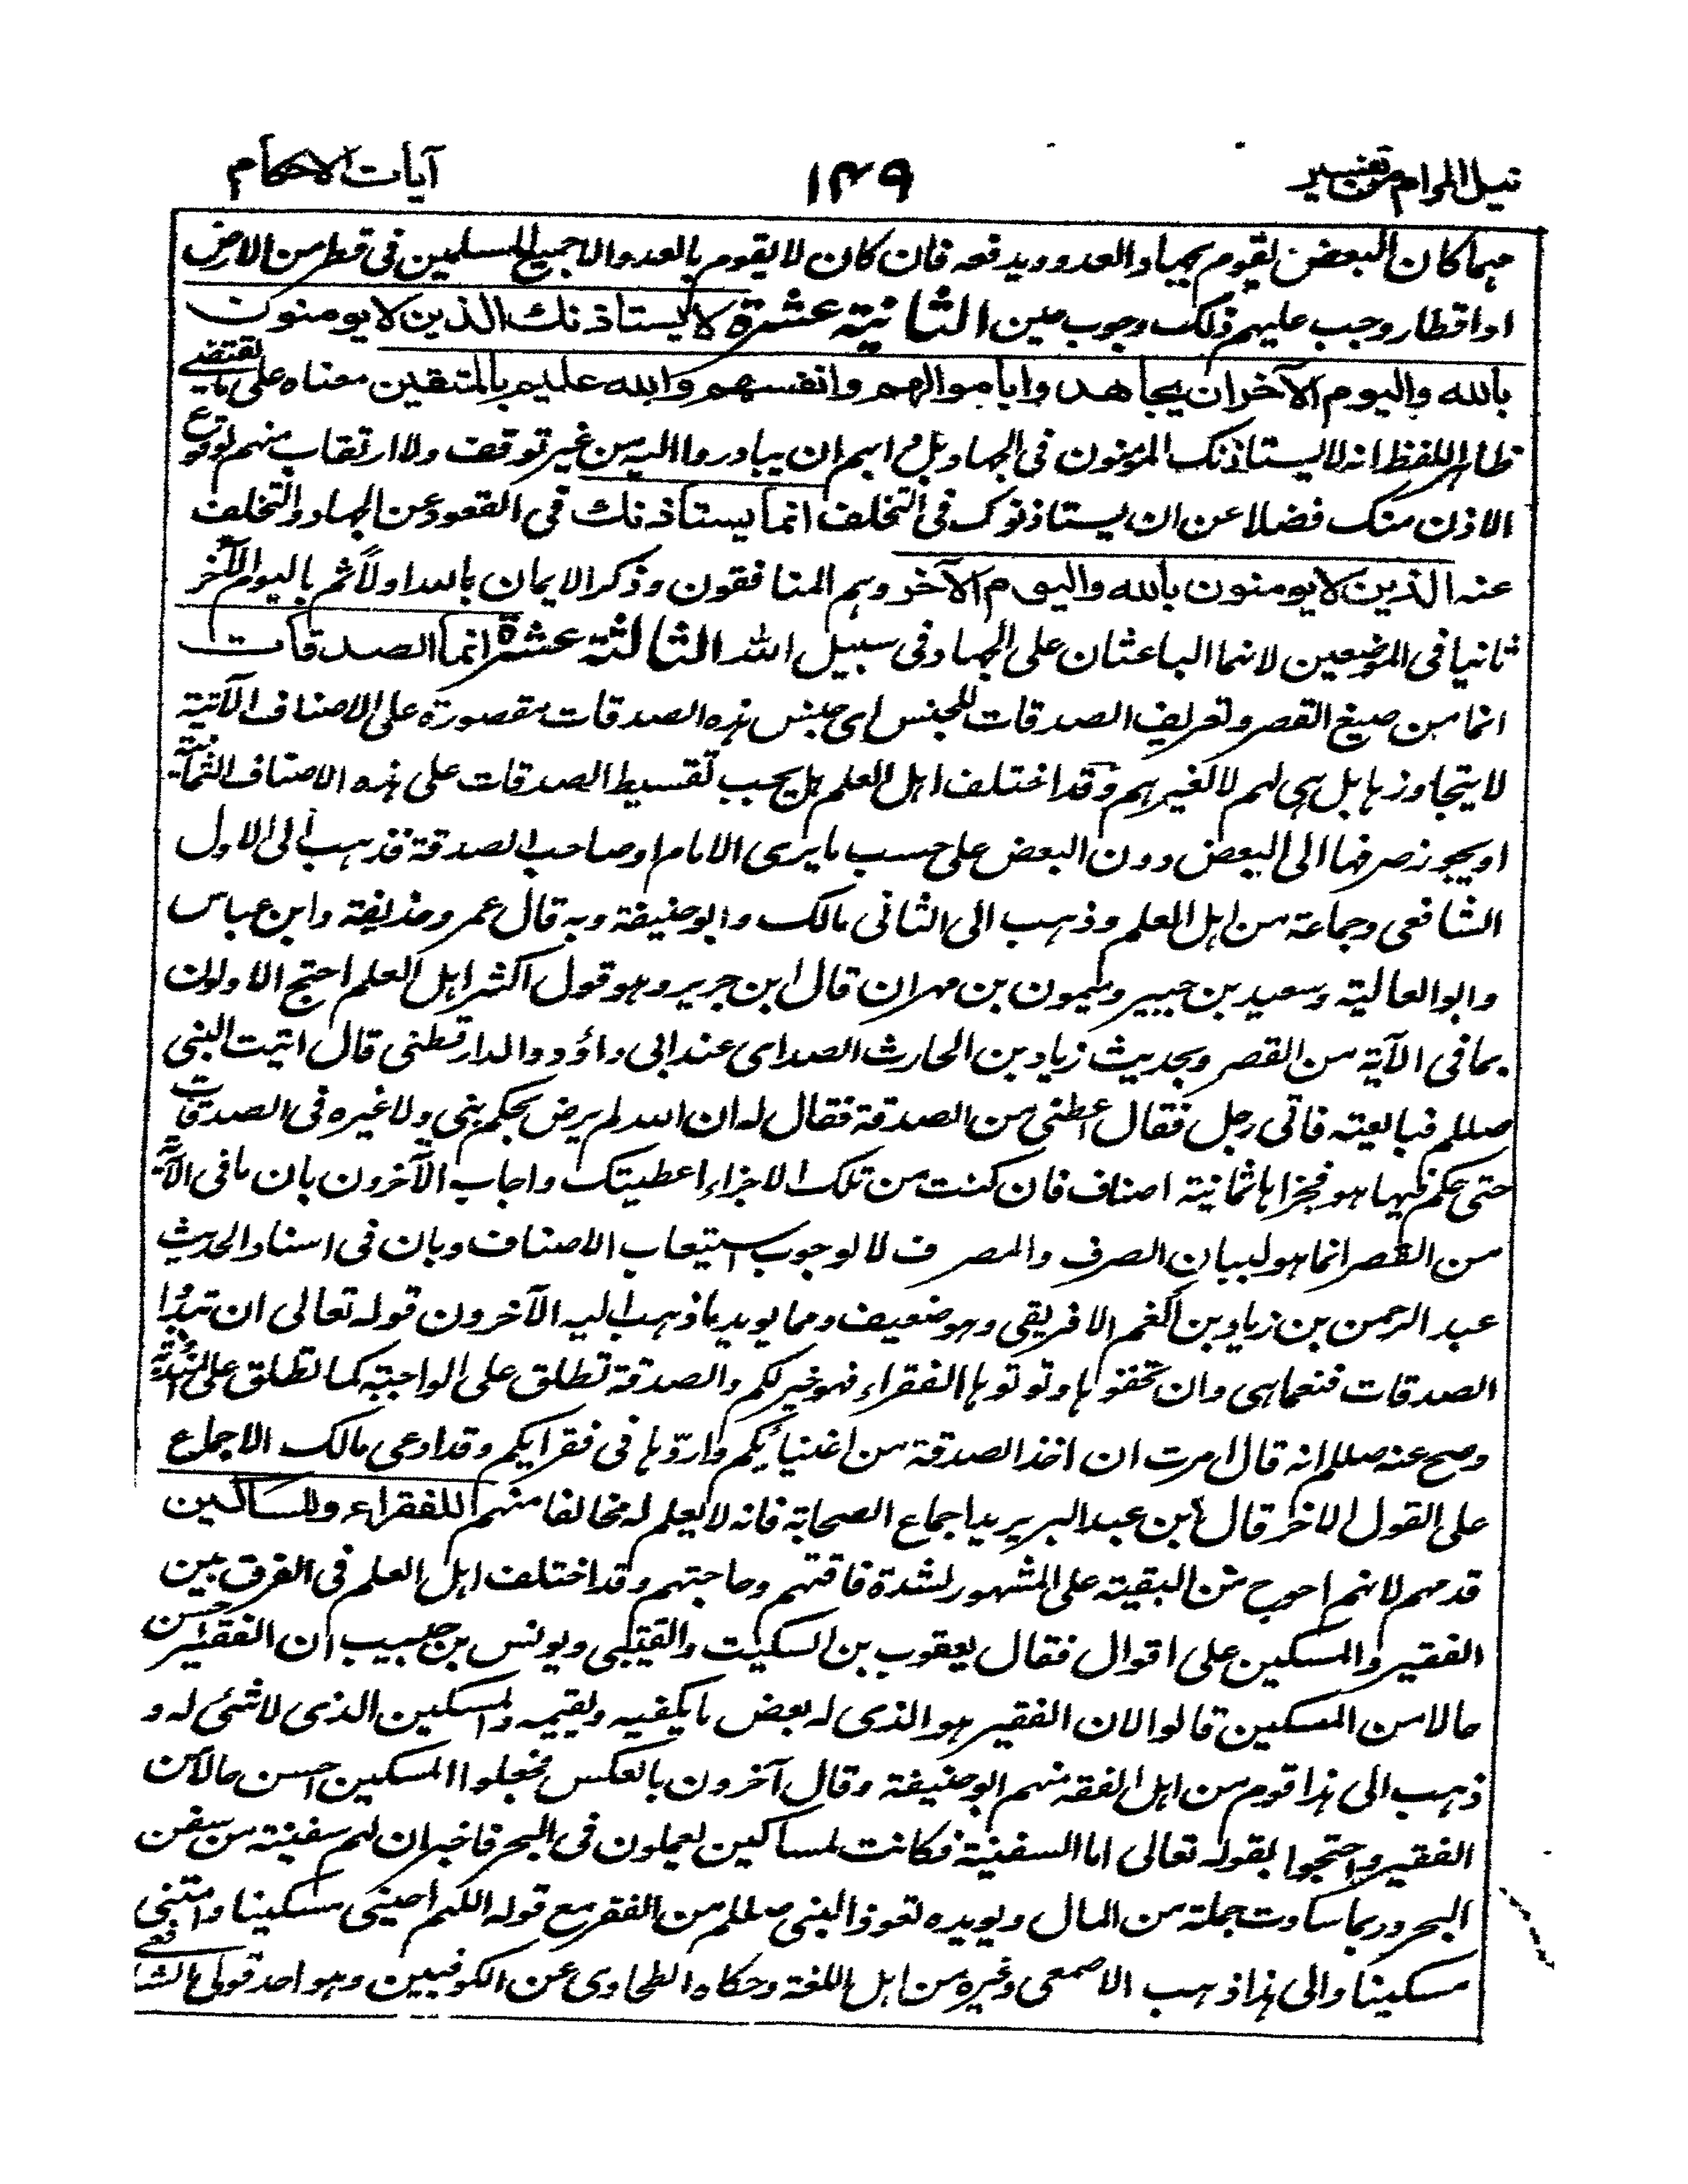 نيل المرام من تفسير ١٤٩ آيات الاحكام
مهما كان البعض يقوم بجهاد العدو ويدفعه فان كان لا يقوم بالعدو الا جميع المسلمين فى قطر من الارض
او اقطار وجب عليهم ذلك وجوب عين الثانية عشرة لا يستاذنك الذين لا يومنون
بالله واليوم الآخر ان يجاهدوا باموالهم وانفسهم والله عليم بالمتقين معناه على ما يقتضيه
ظاهر اللفظ انه لا يستاذنك المؤمنون فى الجهاد بل دابهم ان يبادروا اليه من غير توقف ولا ارتقاب منهم لوقوع
الاذن منك فضلا عن ان يستاذنوك فى التخلف انما يستاذنك فى القعود عن الجهاد والتخلف
عنه الذين لا يومنون بالله واليوم الآخر وهم المنافقون وذكر الايمان بالله اولاً ثم باليوم الآخر
ثانيا فى الموضعين لانهما الباعثان على الجهاد فى سبيل الله الثالثة عشرة انما الصدقات
انما من صيغ القصر وتعريف الصدقات للجنس اى جنس هذه الصدقات مقصورة على الاصناف الآتية
لا يتجاوزها بل هى لهم لا لغيرهم وقد اختلف اهل العلم هل يجب تقسيط الصدقات على هذه الاصناف الثمانية
او يجوز صرفها الى البعض دون البعض على حسب ما يرى الامام او صاحب الصدقة فذهب الى الاول
الشافعى وجماعة من اهل العلم وذهب الى الثانى مالك وابو حنيفة وبه قال عمر وحذيفة وابن عباس
وابو العالية وسعيد بن جبير وميمون بن مهران قال ابن جرير وهو قول اكثر اهل العلم احتج الاولون
بما فى الآية من القصر وبحديث زياد بن الحارث الصداى عند ابى داؤد والدارقطنى قال اتيت النبى
صللم فبايعته فاتى رجل فقال اعطنى من الصدقة فقال له ان الله لم يرض بحكم نبى ولا غيره فى الصدقات
حتى حكم فيها هو فجزاها ثمانية اصناف فان كنت من تلك الاجزاء اعطيتك واجاب الآخرون بان ما فى الآية
من القصر انما هو لبيان الصرف والمصرف لا لوجوب استيعاب الاصناف وبان فى اسناد الحديث
عبد الرحمن بن زياد بن انعم الافريقى وهو ضعيف ومما يويد ما ذهب اليه الآخرون قوله تعالى ان تبدوا
الصدقات فنعما هى وان تخفوها وتوتوها الفقراء فهو خير لكم والصدقة تطلق على الواجبة كما تطلق على المندوبة
وصح عنه صللم انه قال امرت ان اخذ الصدقة من اغنيائكم واردّها فى فقرايكم وقد ادعى مالك الاجماع
على القول الاخر قال ابن عبد البر يريد اجماع الصحابة فانه لا يعلم له مخالفا منهم للفقراء والمساكين
قدمهم لانهم احوج من البقية على المشهور لشدة فاقتهم وحاجتهم وقد اختلف اهل العلم فى الفرق بين
الفقير والمسكين على اقوال فقال يعقوب بن السكيت والقتيبى ويونس بن حبيب ان الفقير احسن
حالا من المسكين قالوا لان الفقير هو الذى له بعض ما يكفيه ويقيمه والمسكين الذى لا شئ له و
ذهب الى هذا قوم من اهل الفقه منهم ابو حنيفة وقال آخرون بالعكس فجعلوا المسكين احسن حالا من
الفقير واحتجوا بقوله تعالى اما السفينة فكانت لمساكين يعملون فى البحر فاخبر ان لهم سفينة من سفن
البحر وربما ساوت جملة من المال ويويده تعوذ النبى صللم من الفقر مع قوله اللهم احينى مسكينا وامتنى
مسكينا والى هذا ذهب الاصمعى وغيره من اهل اللغة وحكاه الطحاوى عن الكوفيين وهو احد قولى الشافعى